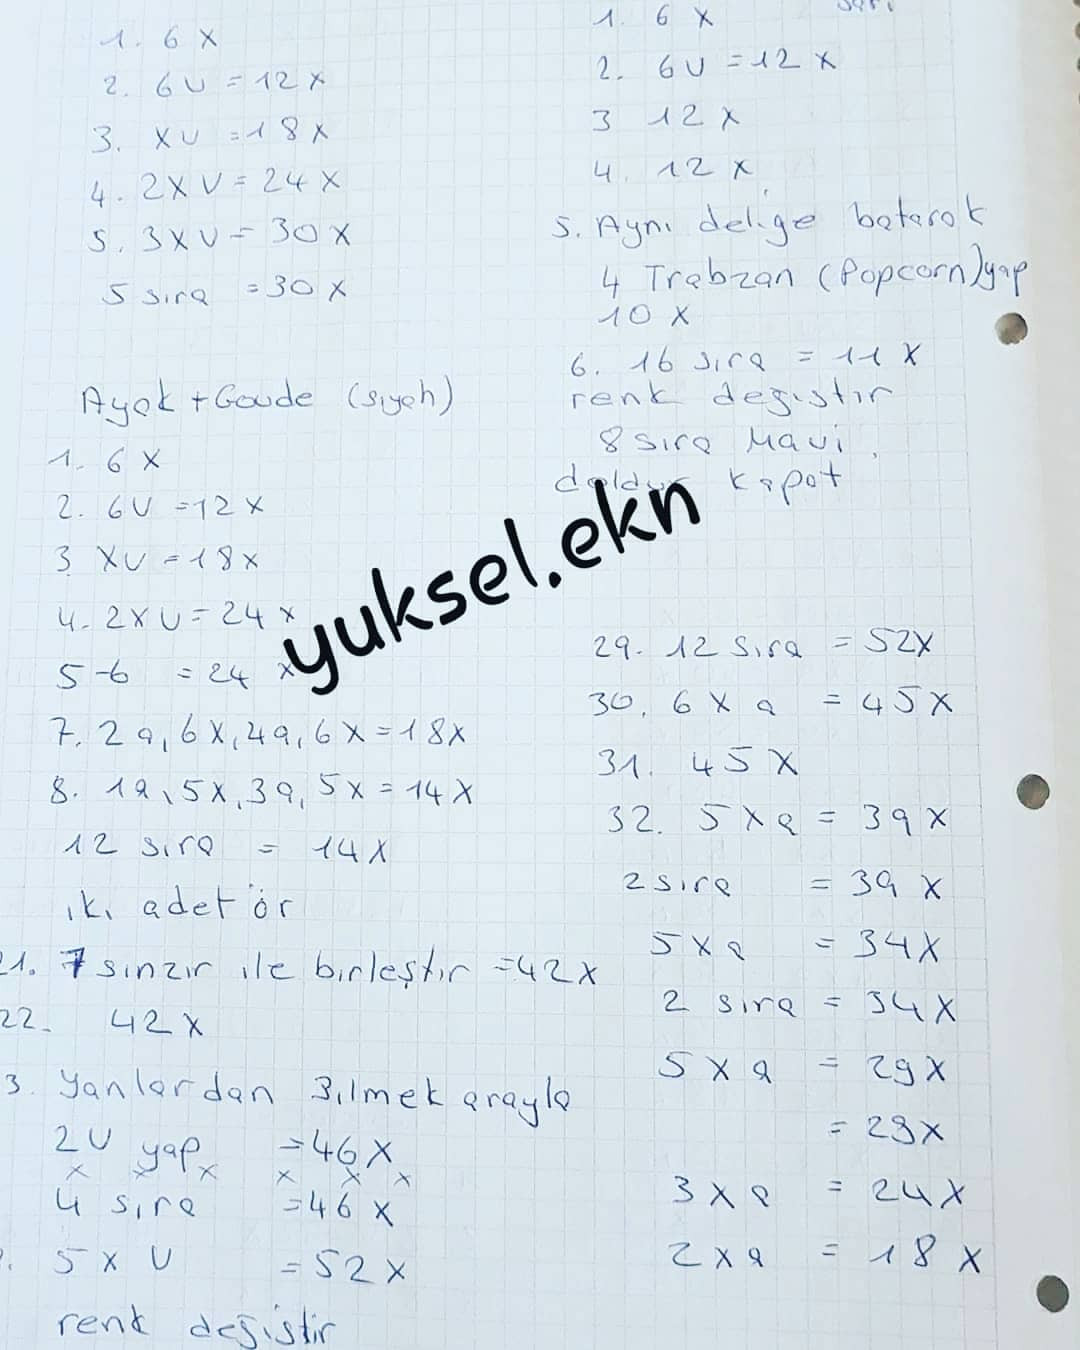 1. 6 X
2. 6U = 12 X
3. XU = 18 X
4. 2X V = 24 X
5. 3XU = 30 X
5 sıra = 30 X
Ayak + Govde (siyah)
1. 6 X
2. 6U = 12 X
3. XU = 18 X
4. 2X U = 24 X
5-6 = 24 X
7. 2a, 6X, 4a, 6X = 18X
8. 1a, 5X, 3a, 5X = 14X
12 sıra = 14X
iki adet ör
21. 7 sinzir ile birleştir = 42X
22. 42 X
3. Yanlardan 3.ilmek arayla
2U yap = 46X
X X X X X X
4 sıra = 46 X
5 X U = 52X
renk değiştir
1. 6 X
2. 6U = 12 X
3 12 X
4. 12 X
5. Aynı deliğe batarak
4 Trabzan (Popcorn) yap
10 X
6. 16 sıra = 11 X
renk değiştir
8 sıra Mavi
doldur kapat
29. 12 sıra = 52X
30. 6 X a = 45X
31. 45 X
32. 5 X a = 39 X
2 sıra = 39 X
5 X a = 34X
2 sıra = 34X
5 X a = 29X
= 29X
3 X a = 24X
2 X a = 18 X
yuksel.ekn